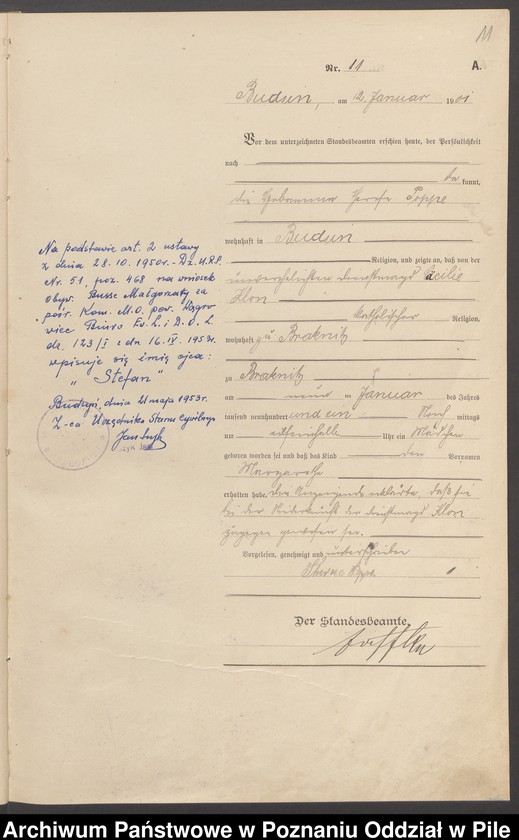 11
Nr. 11
A.
Budsin, am 12 Januar 1901
Vor dem unterzeichneten Standesbeamten erschien heute, der Persönlichkeit
nach
bekannt,
die Hebamme Poppe
wohnhaft in Budsin
Religion, und zeigte an, daß von der
unverehelichten Dienstmagd Cäcilie
Klon
katholischer Religion,
wohnhaft zu Braknitz
zu Braknitz
am neun ten Januar des Jahres
tausend neunhundert und ein Nach mittags
um Uhr ein Mädchen
geboren worden sei und daß das Kind den Vornamen
Margarethe
erhalten habe. Die Anzeigende erklärte, daß sie
bei der Niederkunft der Dienstmagd Klon
zugegen gewesen sei.
Vorgelesen, genehmigt und unterschrieben
Der Standesbeamte.
Na podstawie art. 2 ustawy
z dnia 28. 10. 1950 r. - Dz. U. R.P.
Nr. 51, poz. 468 na wniosek
Obyw. Busse Małgorzaty za
pośr. Kom. M.O. pow. Wągro
wiec Biuro Ew. L. i D. O. L.
dz. 123/I z dn 16. IV. 1953 r.
wpisuje się imię ojca:
"Stefan"
Budzyń, dnia 11 maja 1953 r.
Z-ca Urzędnika Stanu Cywilnego
Archiwum Państwowe w Poznaniu Oddział w Pile